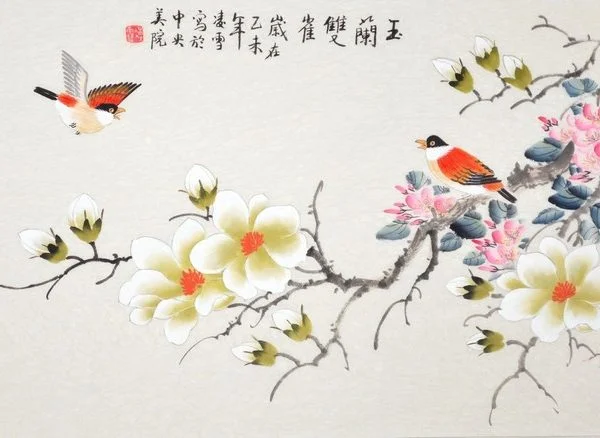 玉
蘭
雙
雀
歲在
乙未
年
凌雪
寫於
中央
美院